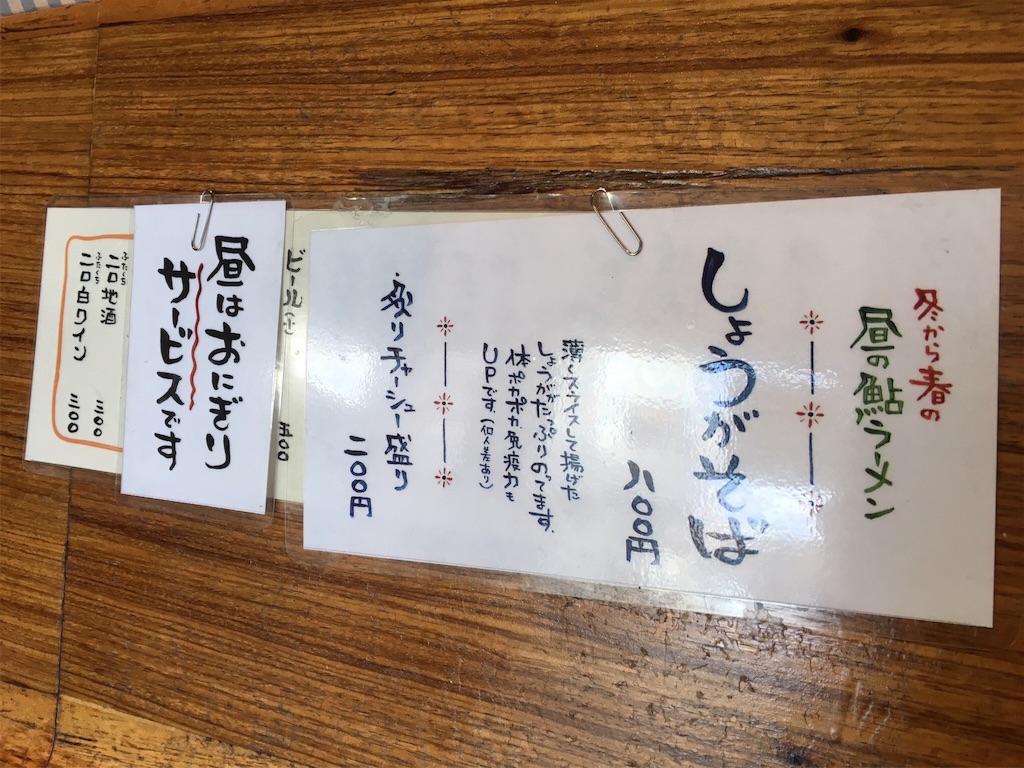 冬から春の
昼の鮎ラーメン
しょうがそば
八〇〇円
薄くスライスして揚げた
しょうがたっぷりのってます。
体ポカポカ免疫力も
UPです。(個人差あり)
炙りチャーシュー盛り
二〇〇円
ビール(小)
五〇〇
昼はおにぎり
サービスです
ふたくち
二口地酒
三〇〇
ふたくち
二口白ワイン
三〇〇